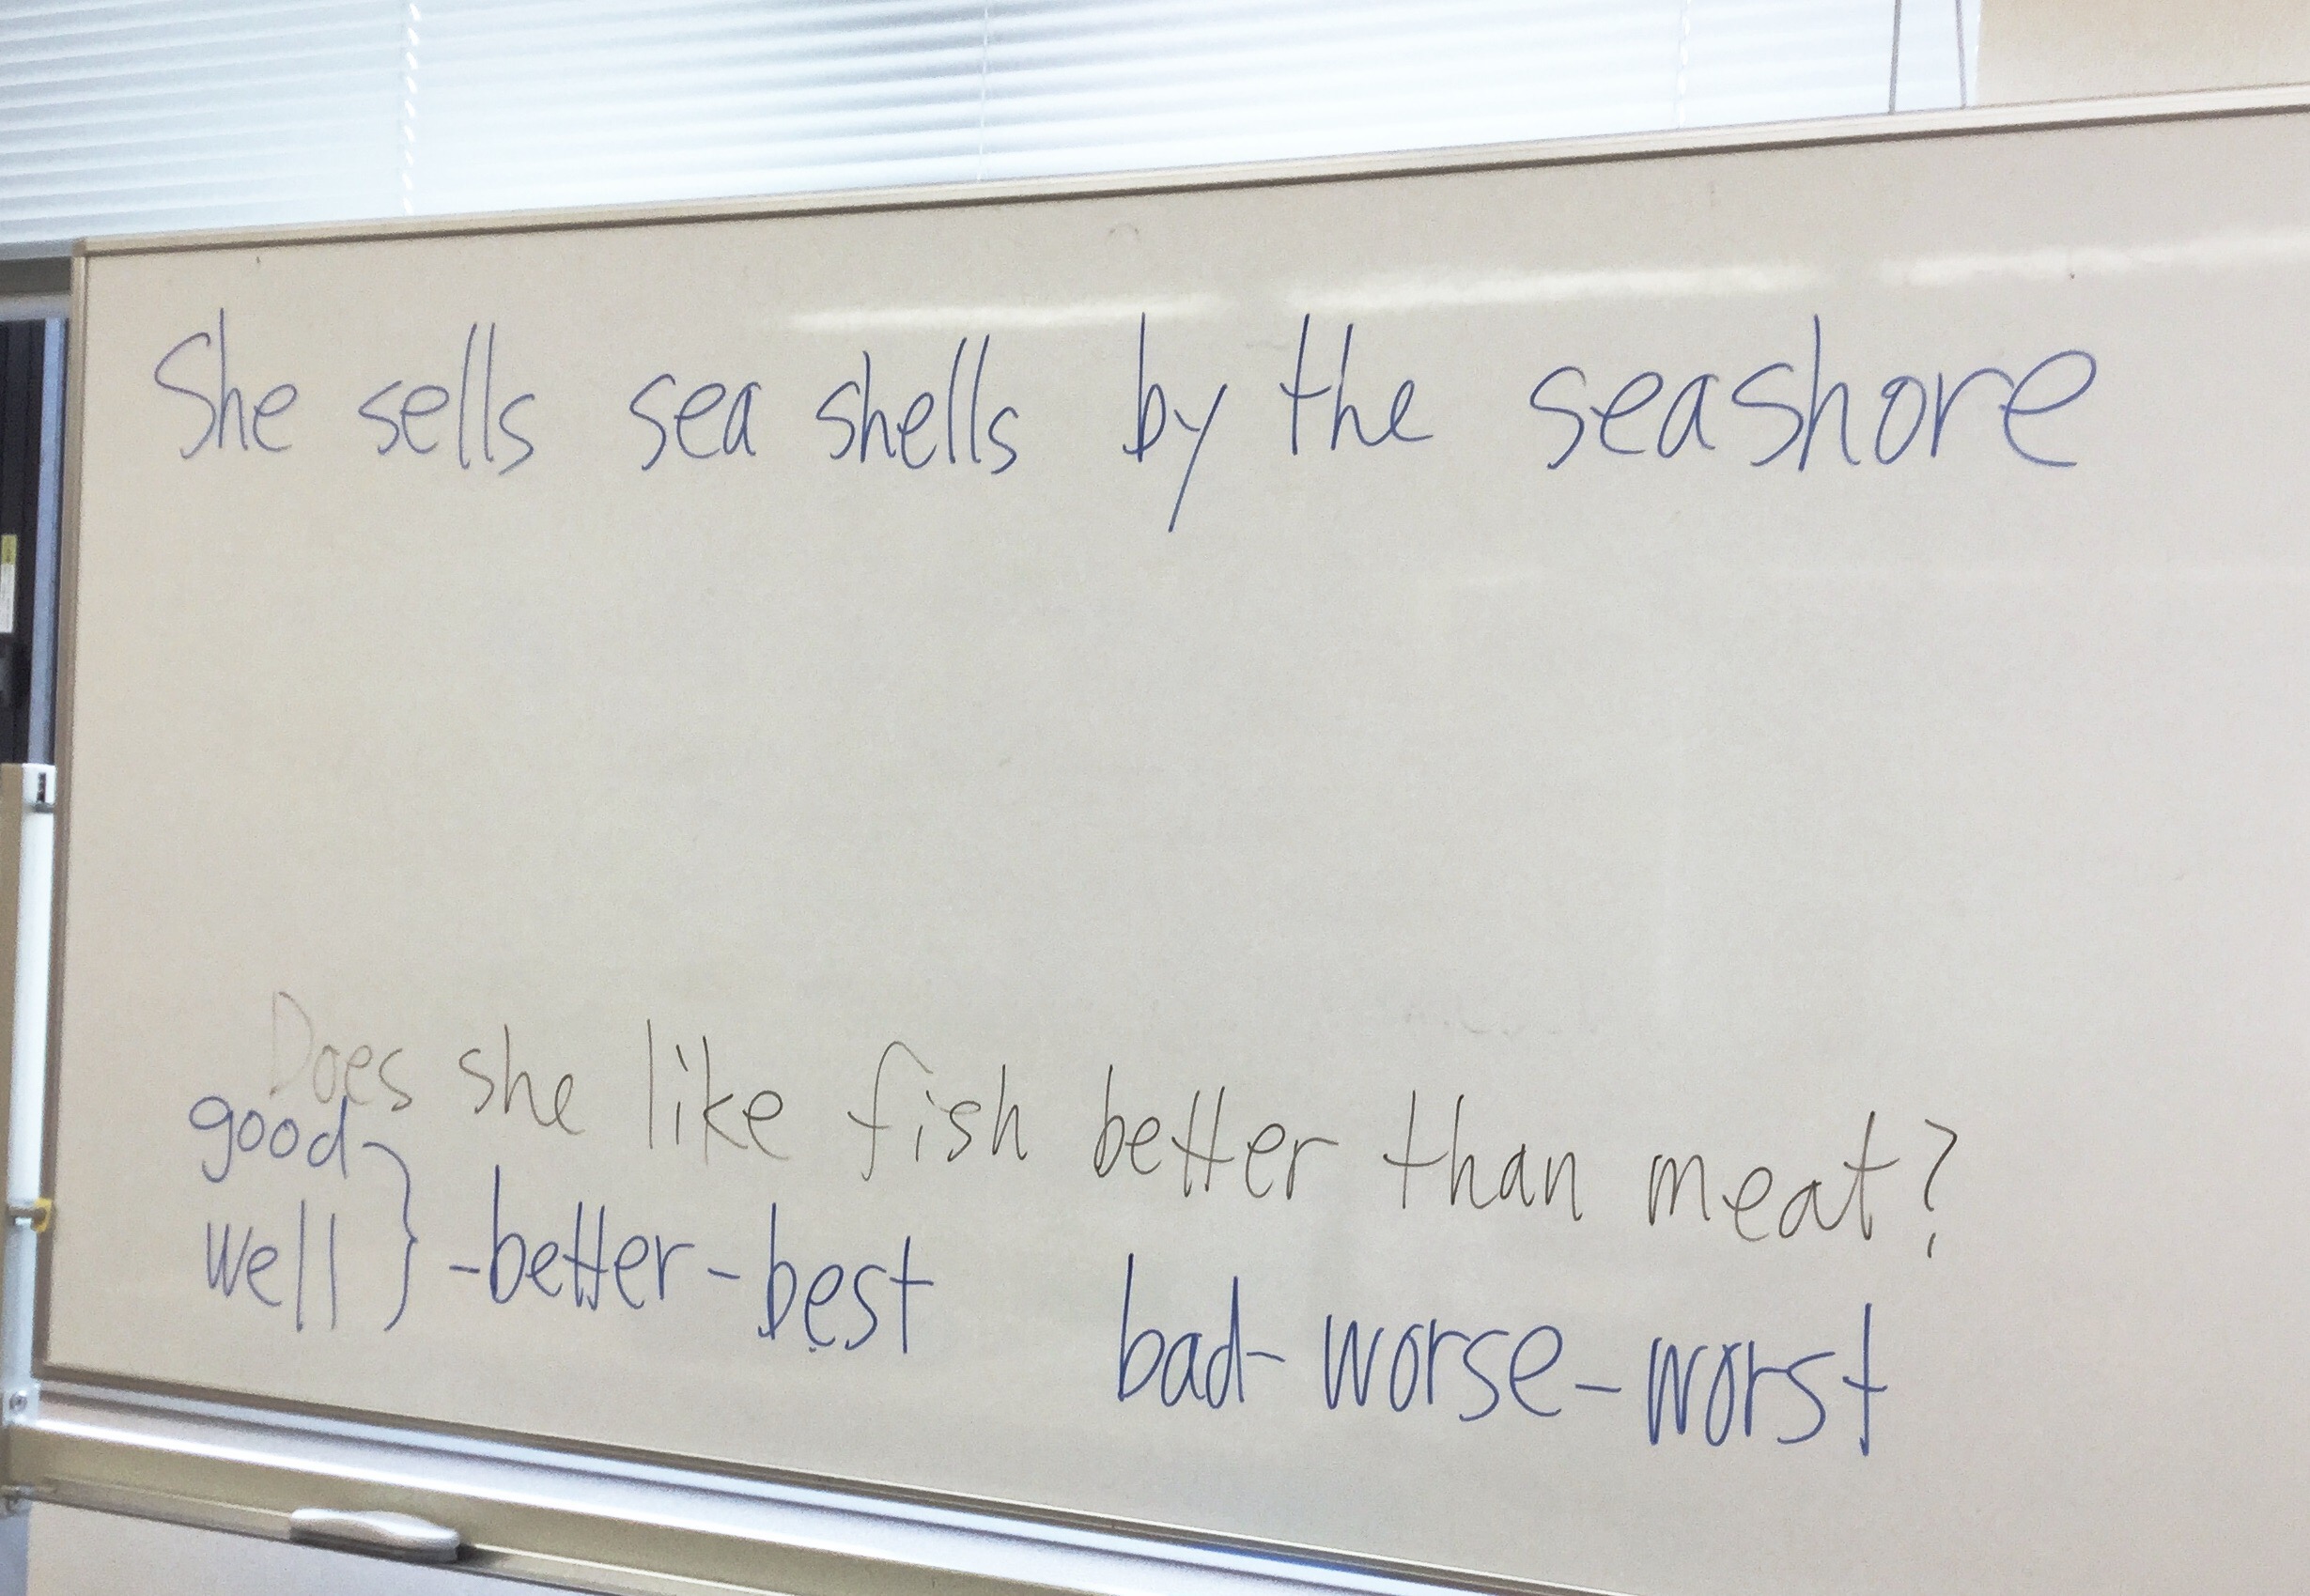 She sells sea shells by the seashore
Does she like fish better than meat?
good-
well } -better-best
bad-worse-worst